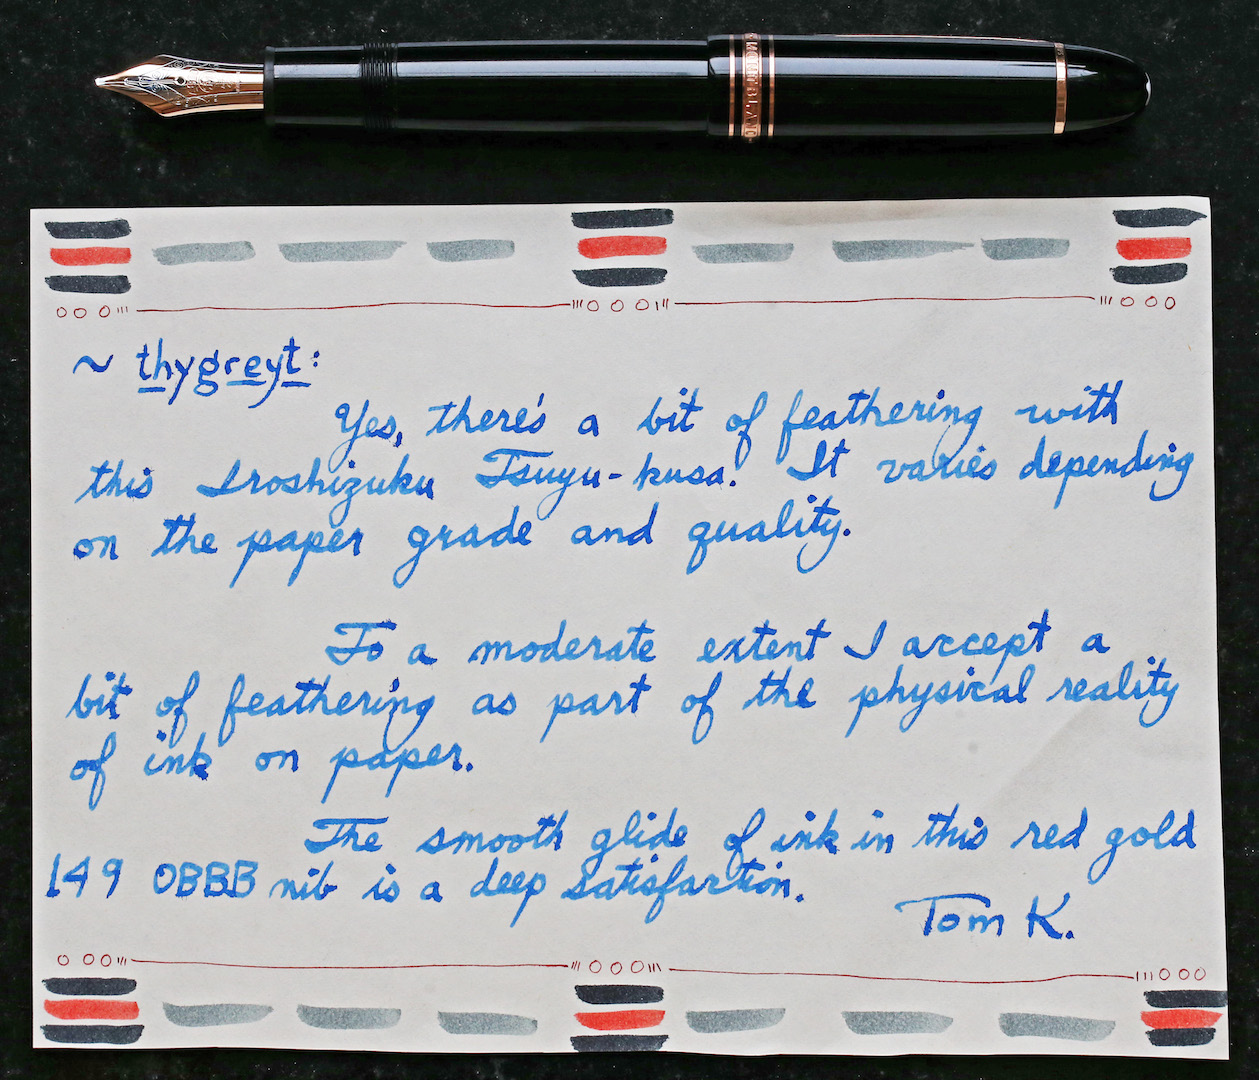 MONTBLANC
~ thygreyt:
Yes, there's a bit of feathering with
this Iroshizuku Tsuyu-kusa. It varies depending
on the paper grade and quality.
To a moderate extent I accept a
bit of feathering as part of the physical reality
of ink on paper.
The smooth glide of ink in this red gold
149 OBBB nib is a deep satisfaction.
Tom K.